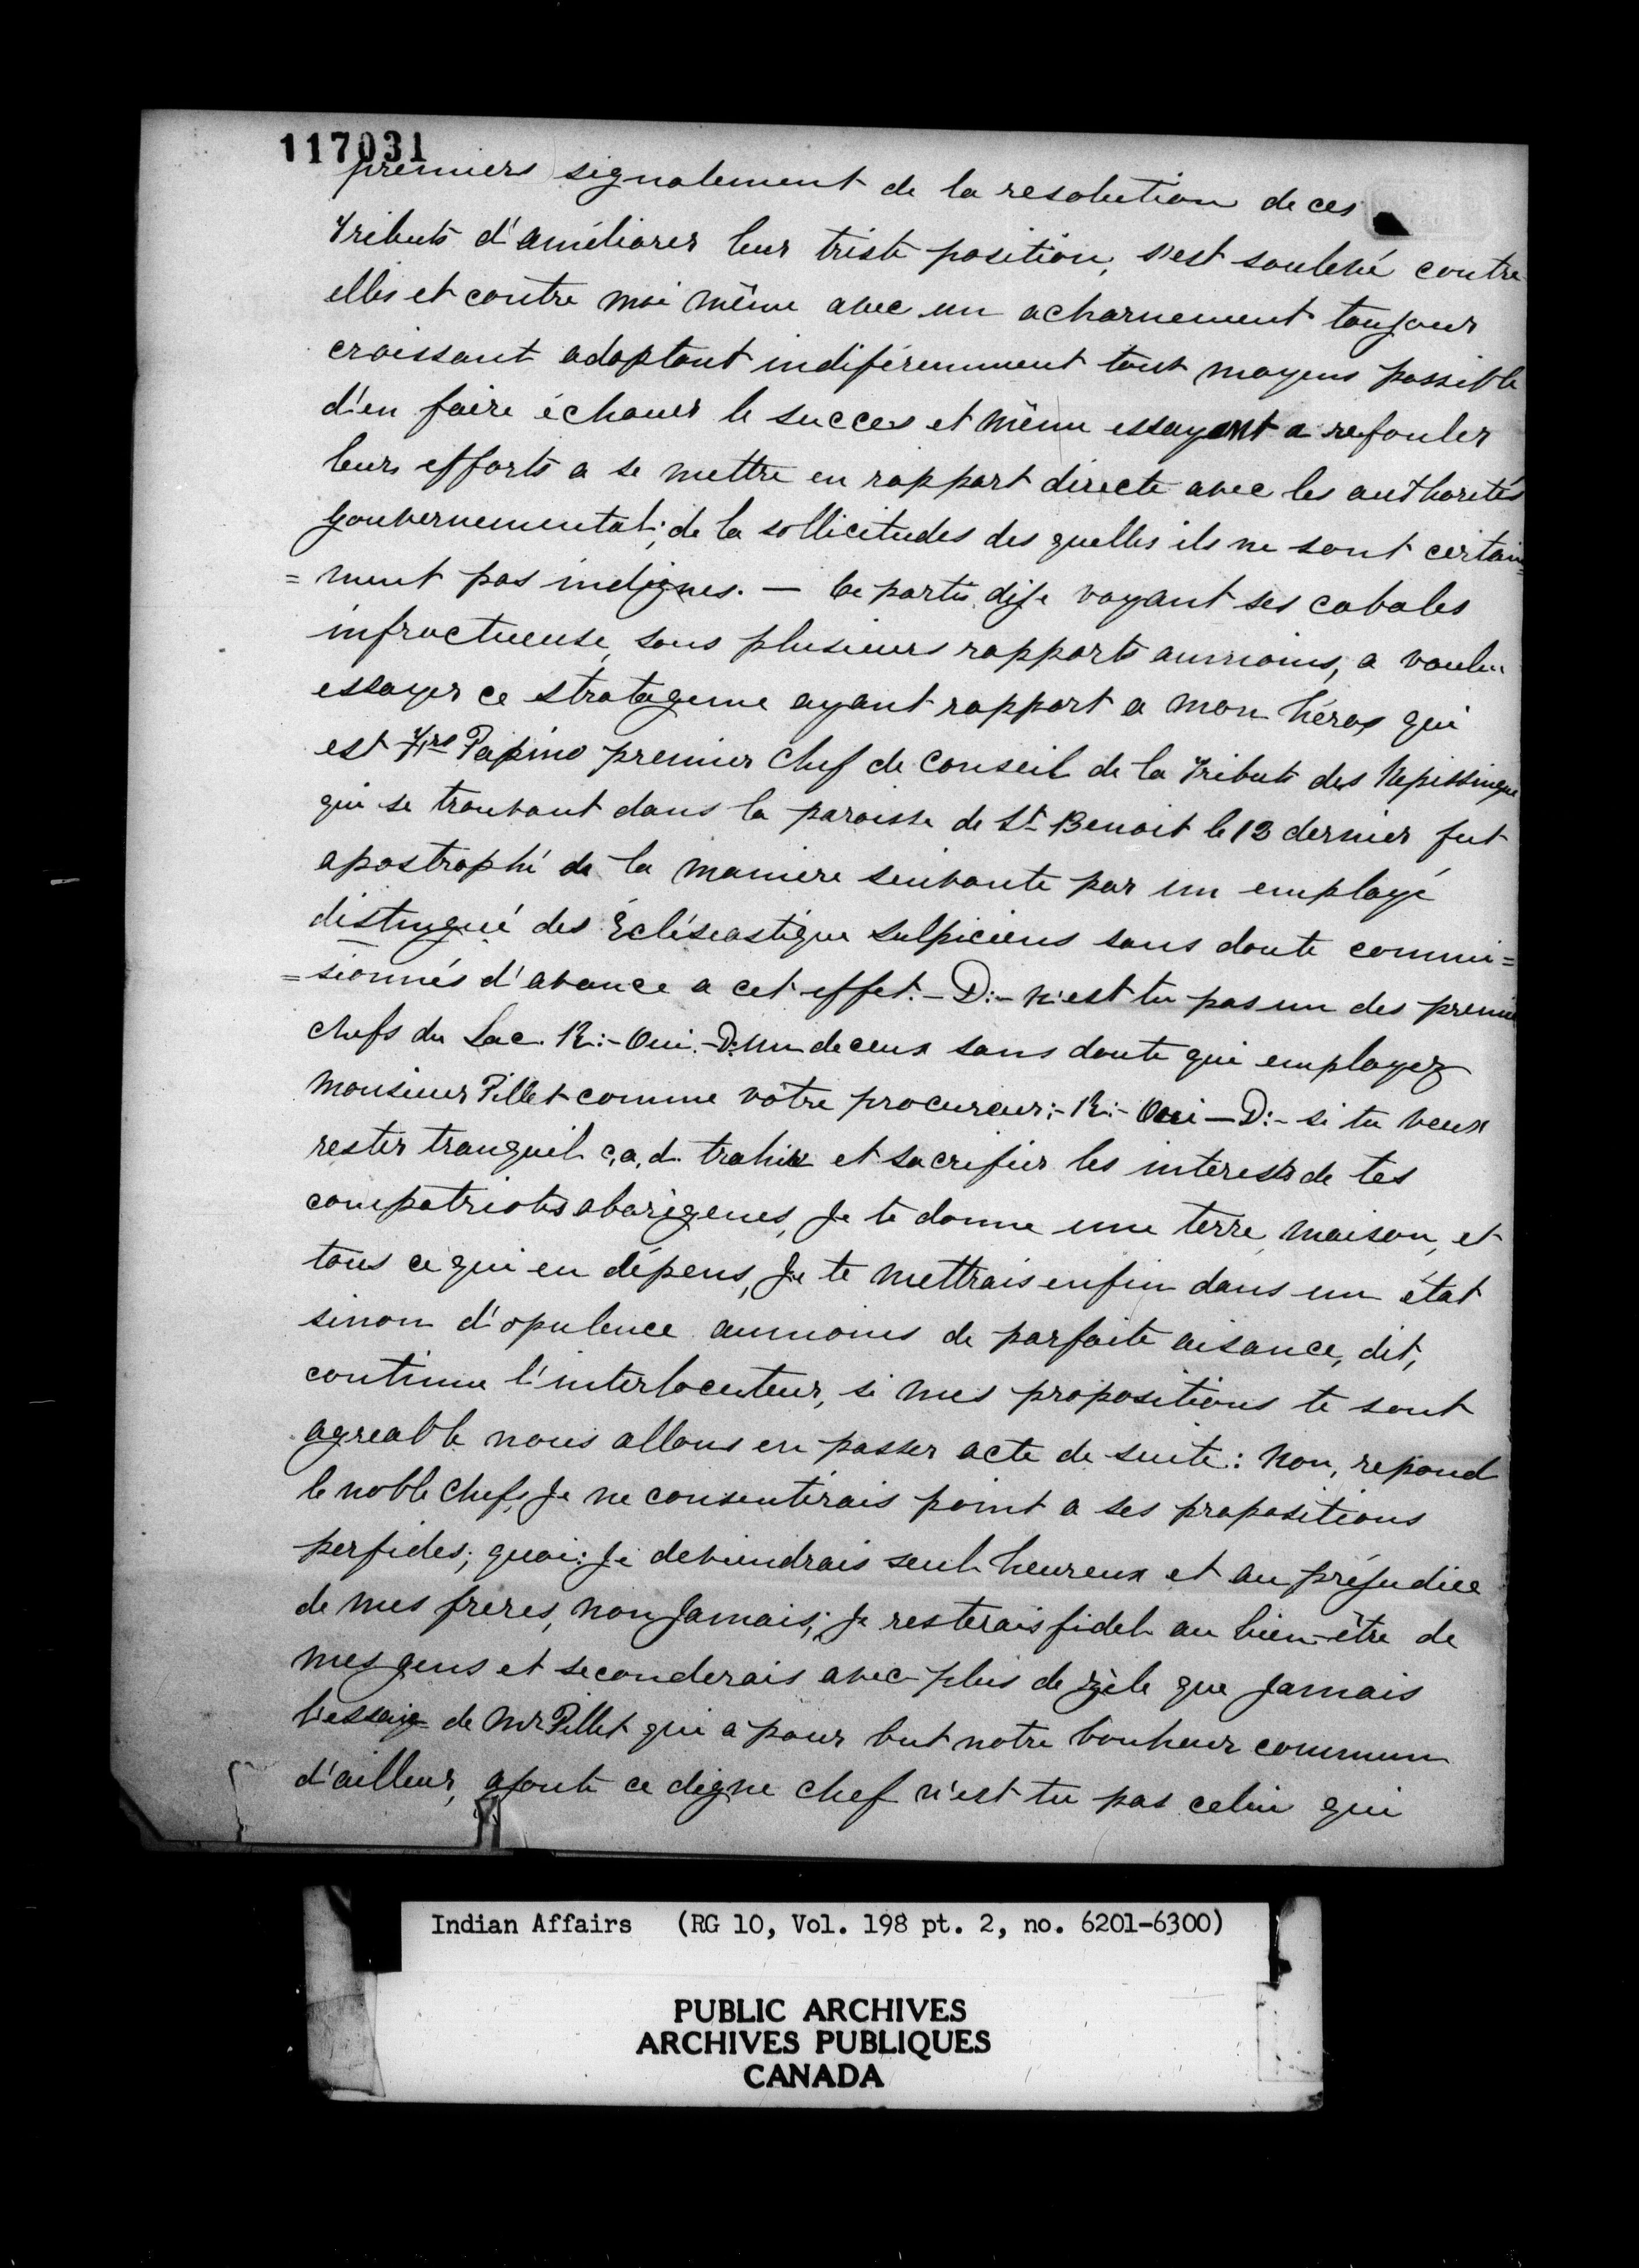 117031
premiers signalement de la resolution de ces
Tributs d'améliorer leur triste position, s'est soulevé contre
elles et contre moi même avec un acharnement toujour
croissant adoptant indiféremment tout moyens possible
d'en faire échouer le succes et même essayant a refouler
leurs efforts a se mettre en rapport directe avec les authorités
gouvernemental; de la sollicitudes des quelles ils ne sont certain=
=ment pas indignes. — Ce partis disje voyant ses cabales
infructueuse, sous plusieurs rapports aumoins, a voulu
essayer ce stratageme ayant rapport a mon héros qui
est Frs Papino premier Chef de Conseil de la Tributs des Nepissingue
qui se trouvant dans la paroisse de St Benoit le 13 dernier fut
apostrophé de la maniere suivante par un employé
distingué des Écléseastique Sulpiciens sans doute commi=
=sionnés d'avance a cet effet. — D:- n'est tu pas un des premier
chefs du Lac. R:- Oui. - D: un de ceux sans doute qui employez
Monsieur Pillet comme vôtre procureur; - R:- Oui — D:- si tu veux
rester tranquil c,a,d. trahir et sacrifier les interests de tes
compatriots aborigenes, Je te donne une terre, maison, et
tous ce qui en dépens, Je te mettrais enfin dans un état
sinon d'opulence aumoins de parfaite aisance, dit,
continue l'interlocuteur, si mes propositions te sont
agreable nous allons en passer acte de suite: Non, repond
le noble Chef, Je ne consentirais point a ses propositions
perfides; quoi: Je deviendrais seul heureux et au préjudice
de mes freres, non Jamais; Je resterais fidel au bien-être de
mes gens et seconderais avec plus de zèle que Jamais
l'essaie de Mr Pillet qui a pour but notre bonheur commun
d'ailleur, ajoute ce digne chef n'est tu pas celui qui
Indian Affairs (RG 10, Vol. 198 pt. 2, no. 6201-6300)
PUBLIC ARCHIVES
ARCHIVES PUBLIQUES
CANADA